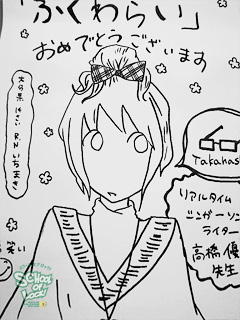 「ふくわらい」
おめでとうございます
大分県 14さい R.N いちまき
Takahas
リアルタイム
シンガーソング
ライター
高橋優
先生
笑い
SCHOOL
OF
LOCK!